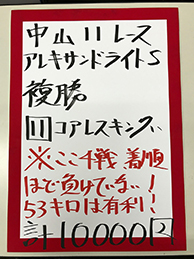 中山11レース
アレキサンドライトS
複勝
11 コアレスキング
※ここ4戦 着順
ほど負けていない!
53キロは有利!
計10000円